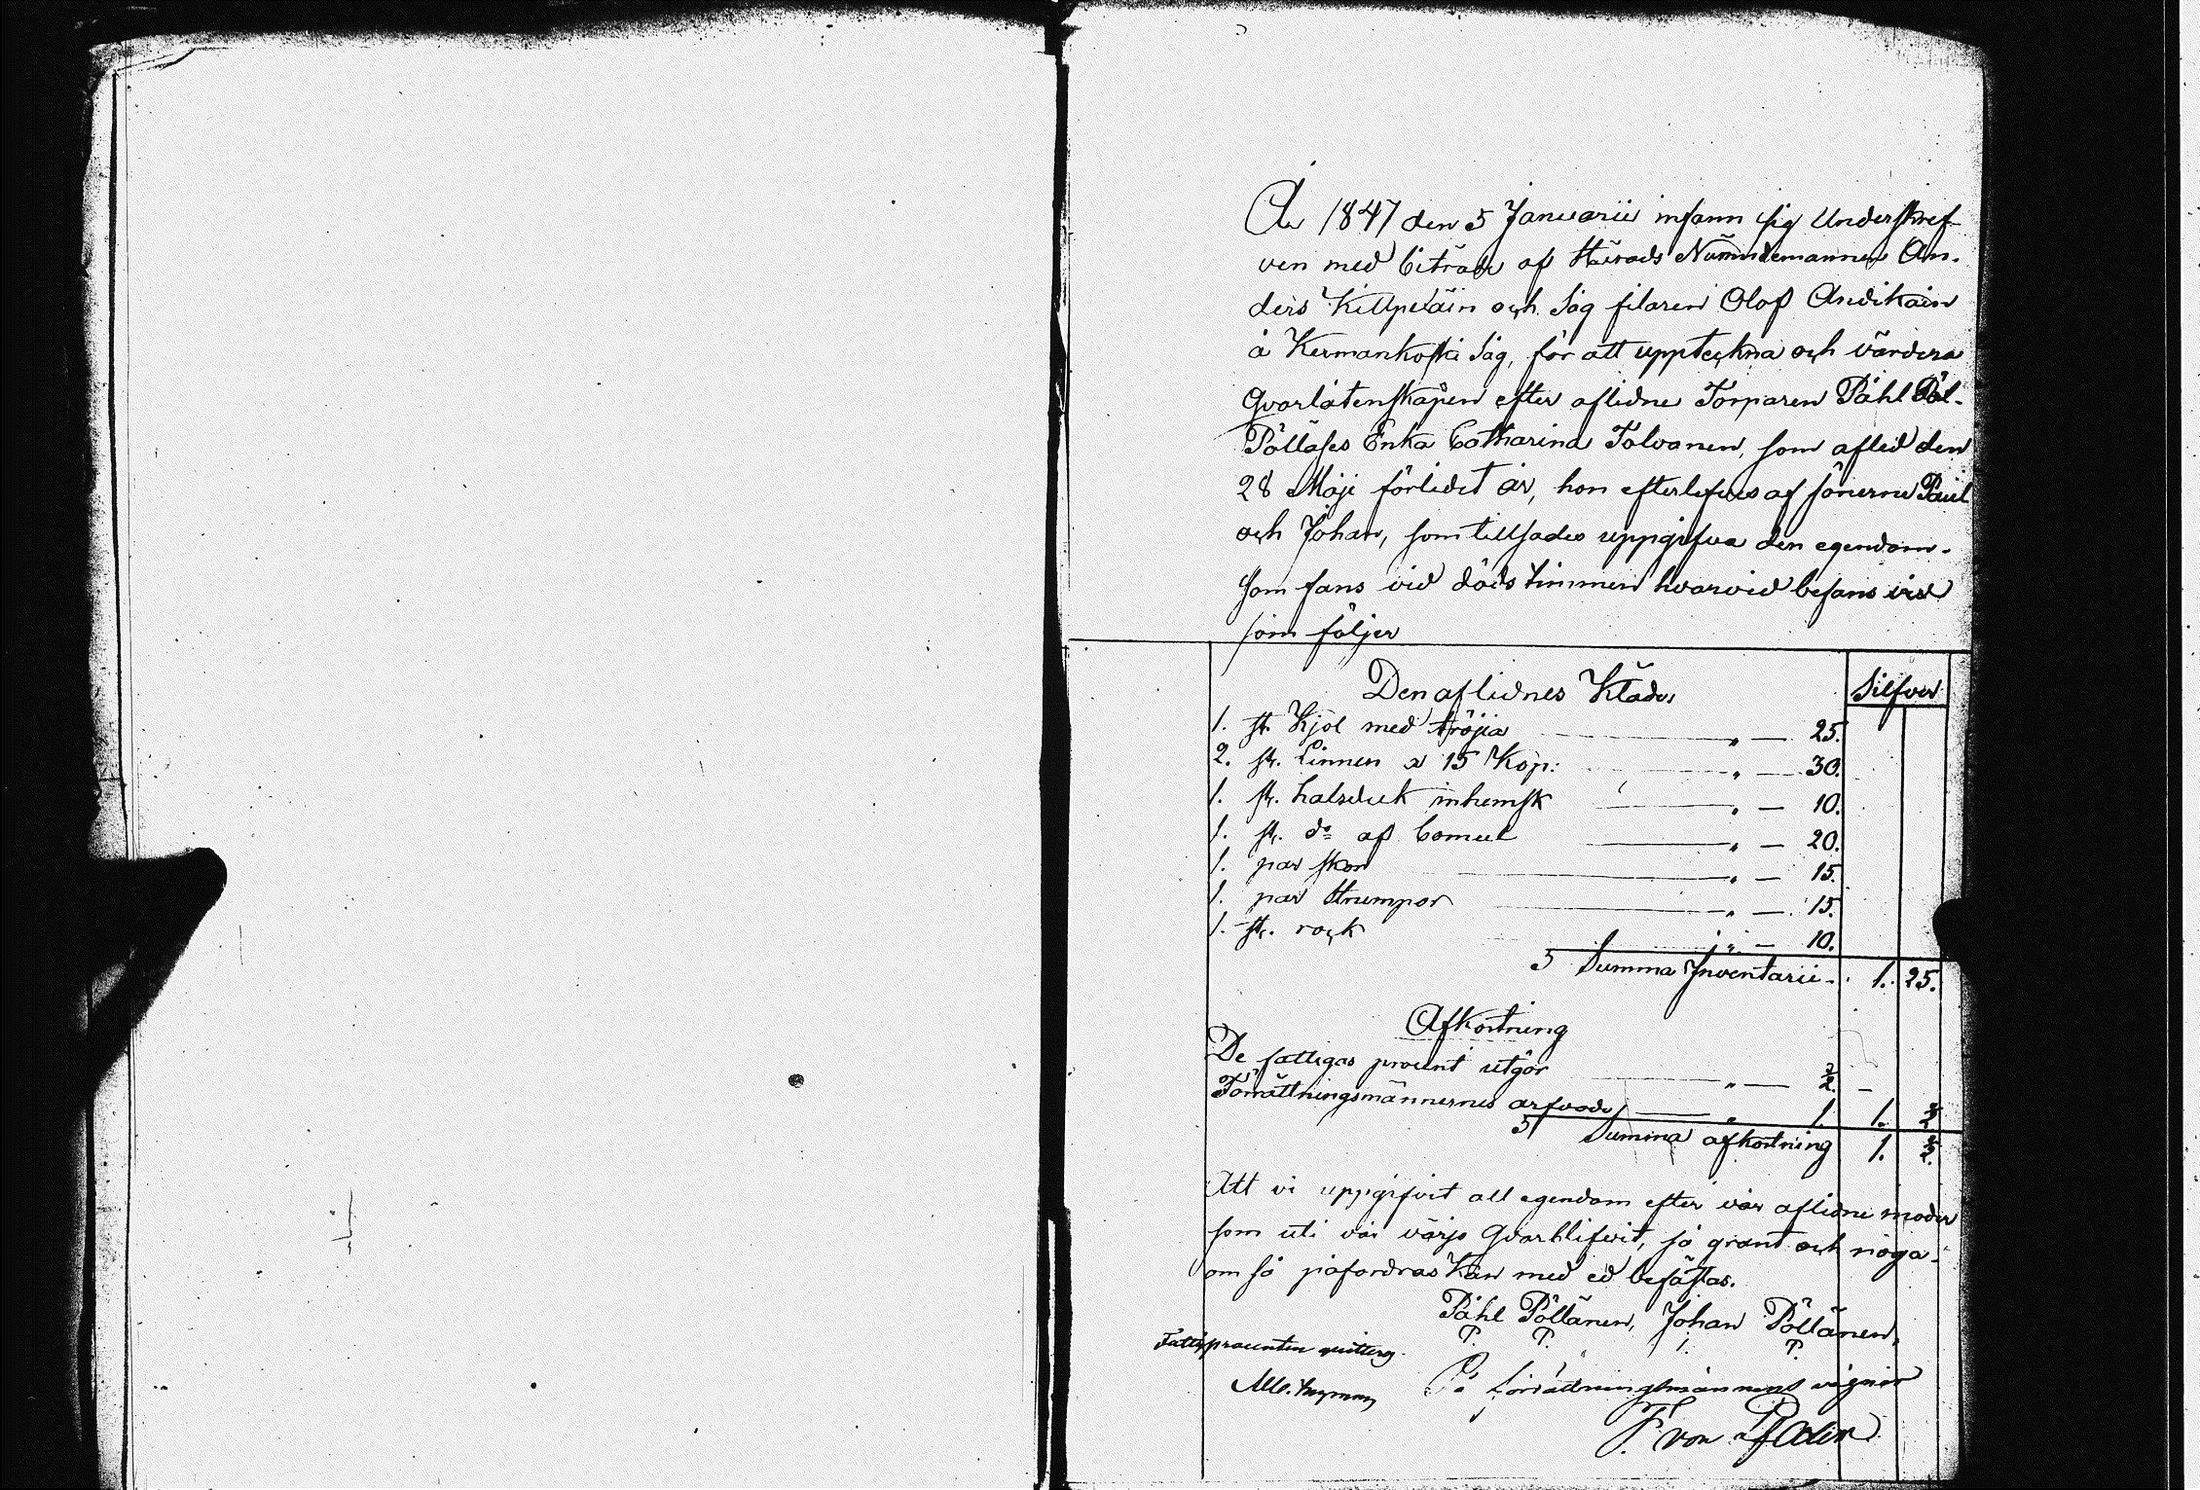 År 1847 den 5 Januarii infann sig Underskref-
ven med biträde af Härads Nämndemannen An-
ders Kilpeläin och Såg filaren Olof Andikain
å Kermankoski Såg, för att uppteckna och värdera
Qvarlåtenskapen efter aflidne Torparen Påhl Pöl-
Pölläses Enka Catharina Tolvanen, som afled den
28 Maji förlidet år, hon efterlefves af sönerne Paul
och Johan, som tillsades uppgifva den egendom
som fans vid dödstimmen hvarvid befans
som följer
Den aflidnes Kläder
Silfver
1. st. Kjol med tröjia " — 25.
2. st. Linnen a 15 Kop: " — 30.
1. st. halsduk inhemsk " — 10.
1. st. do af Comul " — 20.
1. par skor " — 15.
1. par Strumpor " — 15.
1. st. rock " — 10.
Summa Inventarii 1. 25.
Afkortning
De fattigas procent utgör " —
Förrättningsmännernes arfvode — " 1. 1.
Summa afkortning 1.
Att vi uppgifvit all egendom efter vår aflidne moder
som uti vår värjo qvarblifvit, så grant och noga
om så påfordras Kan med ed befästas.
Påhl Pöllänen, Johan Pöllänen,
Fattigprocenten
På förrättningsmännens vägnar
F. von